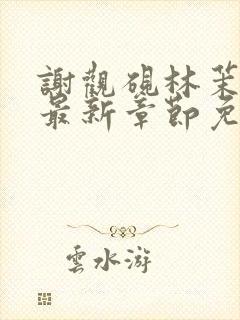 謝觀硯林茉
最新章節免
雲水游